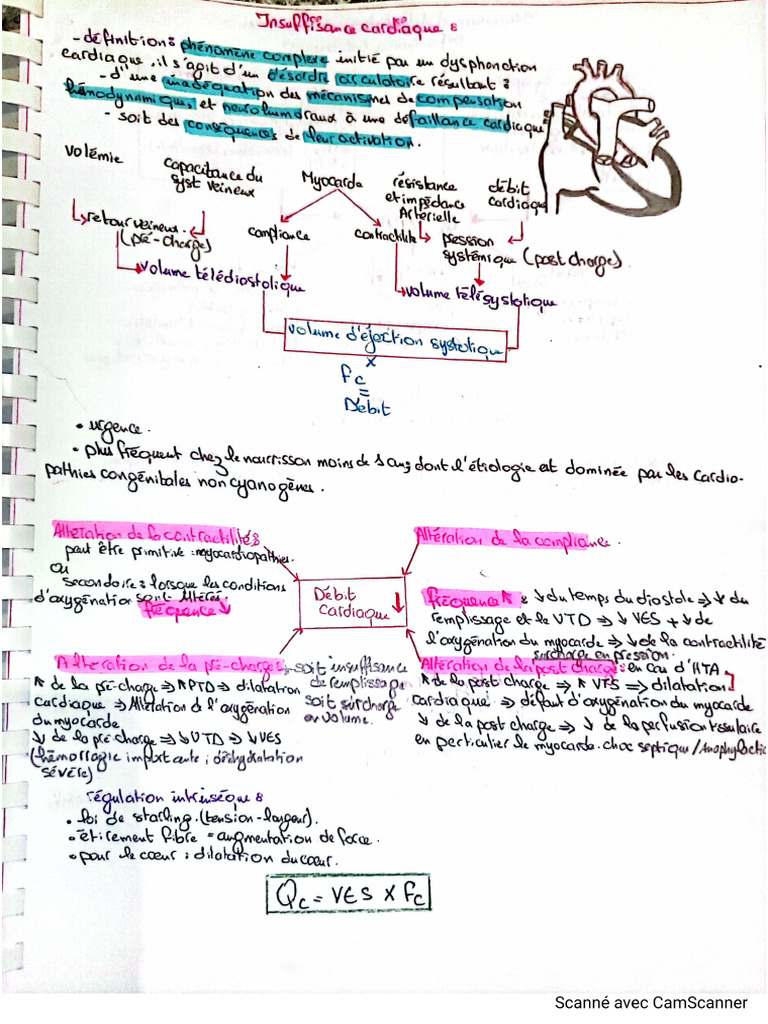 Insuffisance cardiaque :
- définition : phénomène complexe initié par un dysphonction
cardiaque, il s'agit d'un désordre circulatoire résultant :
- d'une inadéquation des mécanismes de compensation
hémodynamique, et neurohumoraux à une défaillance cardiaque
- soit des conséquences de leur activation.
volémie
capacitance du
syst veineux
Myocarde
résistance
et impédance
Artérielle
débit
cardiaque
retour veineux.
(pré-charge)
compliance
contractilité
pression
systémique (post charge).
volume télédiastolique
volume télésystolique
volume d'éjection systolique
x
Fc
=
Débit
• urgence.
• plus fréquent chez le nourrisson moins de 1 an, dont l'étiologie est dominée par les cardio-
pathies congénitales non cyanogènes.
Altération de la contractilité :
peut être primitive : myocardiopathies.
ou
secondaire : lorsque les conditions
d'oxygénation sont altérés.
fréquence ↓
Altération de la compliance.
Débit
cardiaque ↓
fréquence ↑ : ↓ du temps du diastole ⇒ ↓ du
remplissage et le VTD ⇒ ↓ VES + ↓ de
l'oxygénation du myocarde ⇒ ↓ de la contractilité
Altération de la pré-charge : soit insuffisance
de remplissage
soit surcharge
en volume.
↑ de la pré-charge ⇒ ↑ PTD ⇒ dilatation
cardiaque ⇒ Altération de l'oxygénation
du myocarde
↓ de la pré-charge ⇒ ↓ VTD ⇒ ↓ VES
(hémorragie importante ; déshydratation
sévère)
surcharge en pression.
Altération de la post charge : en cas d'HTA
↑ de la post charge ⇒ ↑ VTS ⇒ dilatation
cardiaque ⇒ défaut d'oxygénation du myocarde
↓ de la post charge ⇒ ↓ de la perfusion tissulaire
en particulier le myocarde. choc septique / Anaphylactic
régulation intrinsèque :
• loi de starling. (tension-largeur).
• étirement fibre = augmentation de force.
• pour le cœur : dilatation du cœur.
Qc = VES x Fc
Scanné avec CamScanner